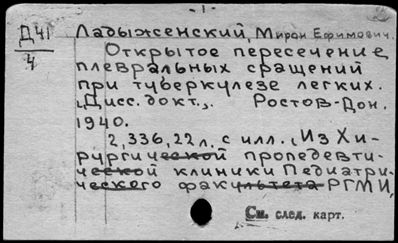 - 1 -
Д41 Ладыженский, Мирон Ефимович.
4 Открытое пересечение
плевральных сращений
при туберкулезе легких.
"Дисс. докт.". Ростов-Дон.
1940.
2, 336, 22 л. с илл. (Из Хи-
рургической пропедевти-
ческой клиники Педиатри-
ческого факультета РГМИ,
См. след. карт.